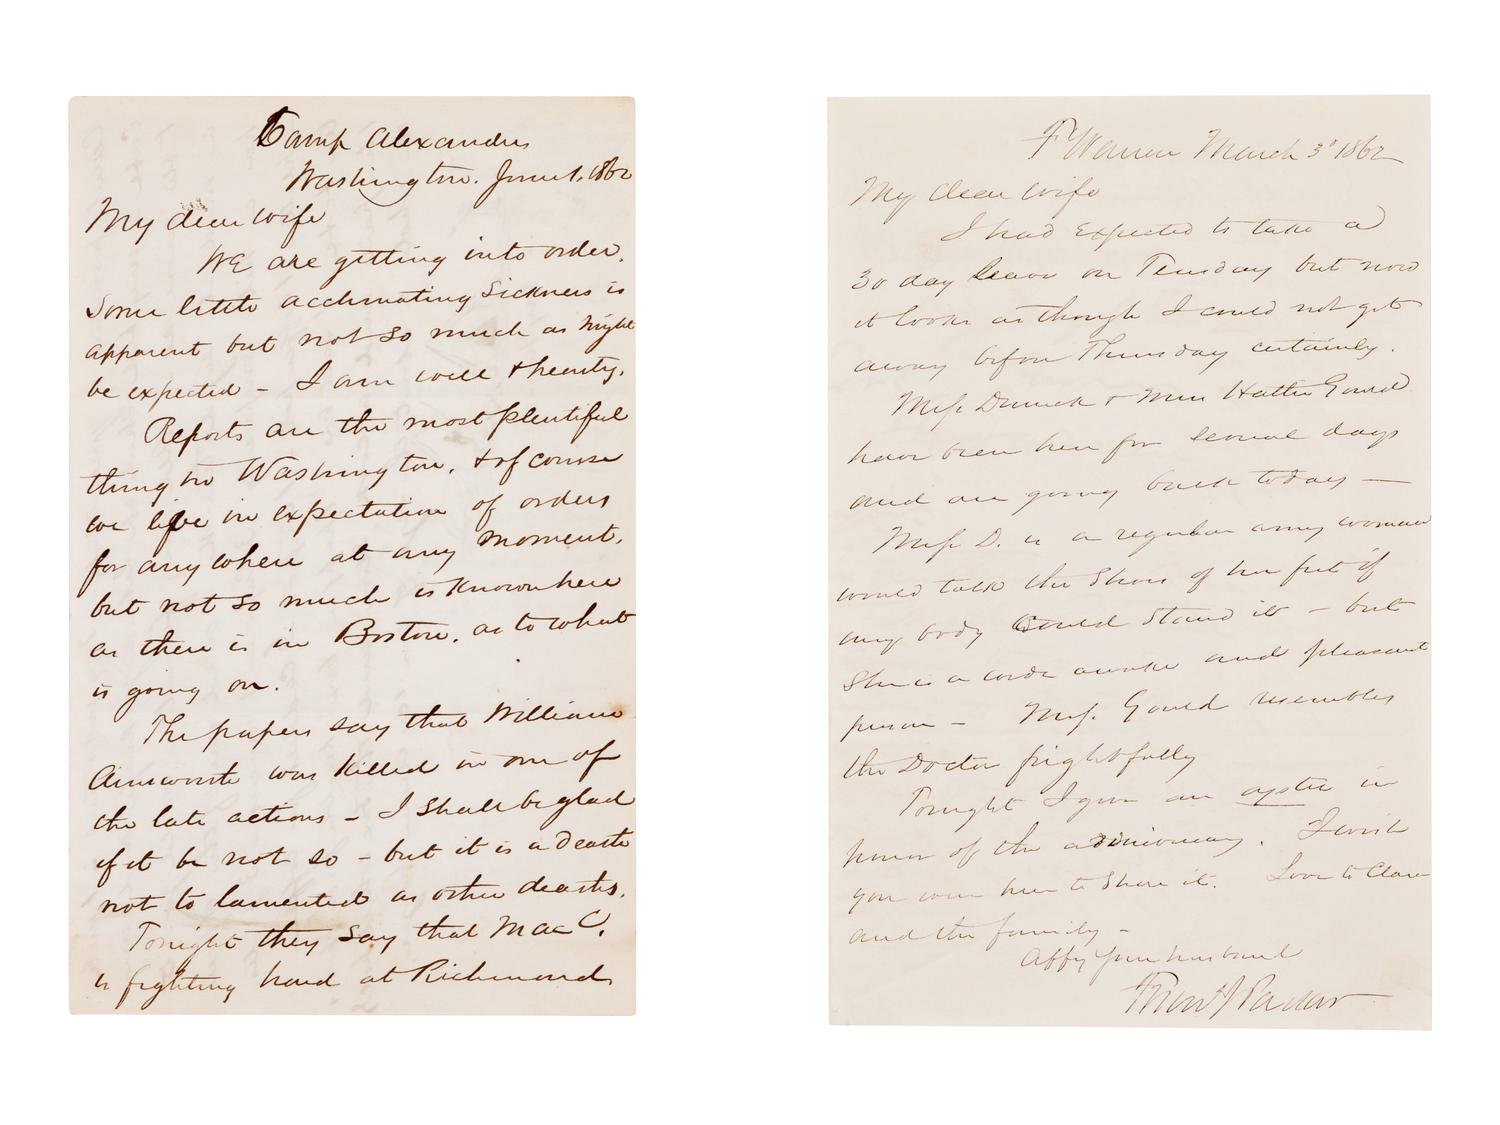 Camp Alexander
Washington. June 1. 1862
My dear wife
We are getting into order.
Some little acclimating sickness is
apparent but not so much as might
be expected - I am well & hearty.
Reports are the most plentiful
thing in Washington. & of course
we live in expectation of orders
for any where at any moment.
but not so much is known here
as there is in Boston. as to what
is going on.
The papers say that William
Ainsworth was killed in one of
the late actions - I shall be glad
if it be not so - but it is a death
not to lamented as other deaths.
Tonight they say that MacC.
is fighting hard at Richmond
Ft Warren March 3d 1862
My dear wife
I had expected to take a
30 day leave on Tuesday but now
it looks as though I could not get
away before Thursday certainly.
Miss Dimick & Miss Hattie Gould
have been here for several days
and are going back today —
Miss D. is a regular army woman
would talk the shoes of her feet if
any body could stand it - but
she is a wide awake and pleasant
person - Miss. Gould resembles
the Doctor frightfully
Tonight I give an oyster in
honor of the . I wish
you were here to share it. Love to Clara
and the family -
Affy your husband
Francis J Parker